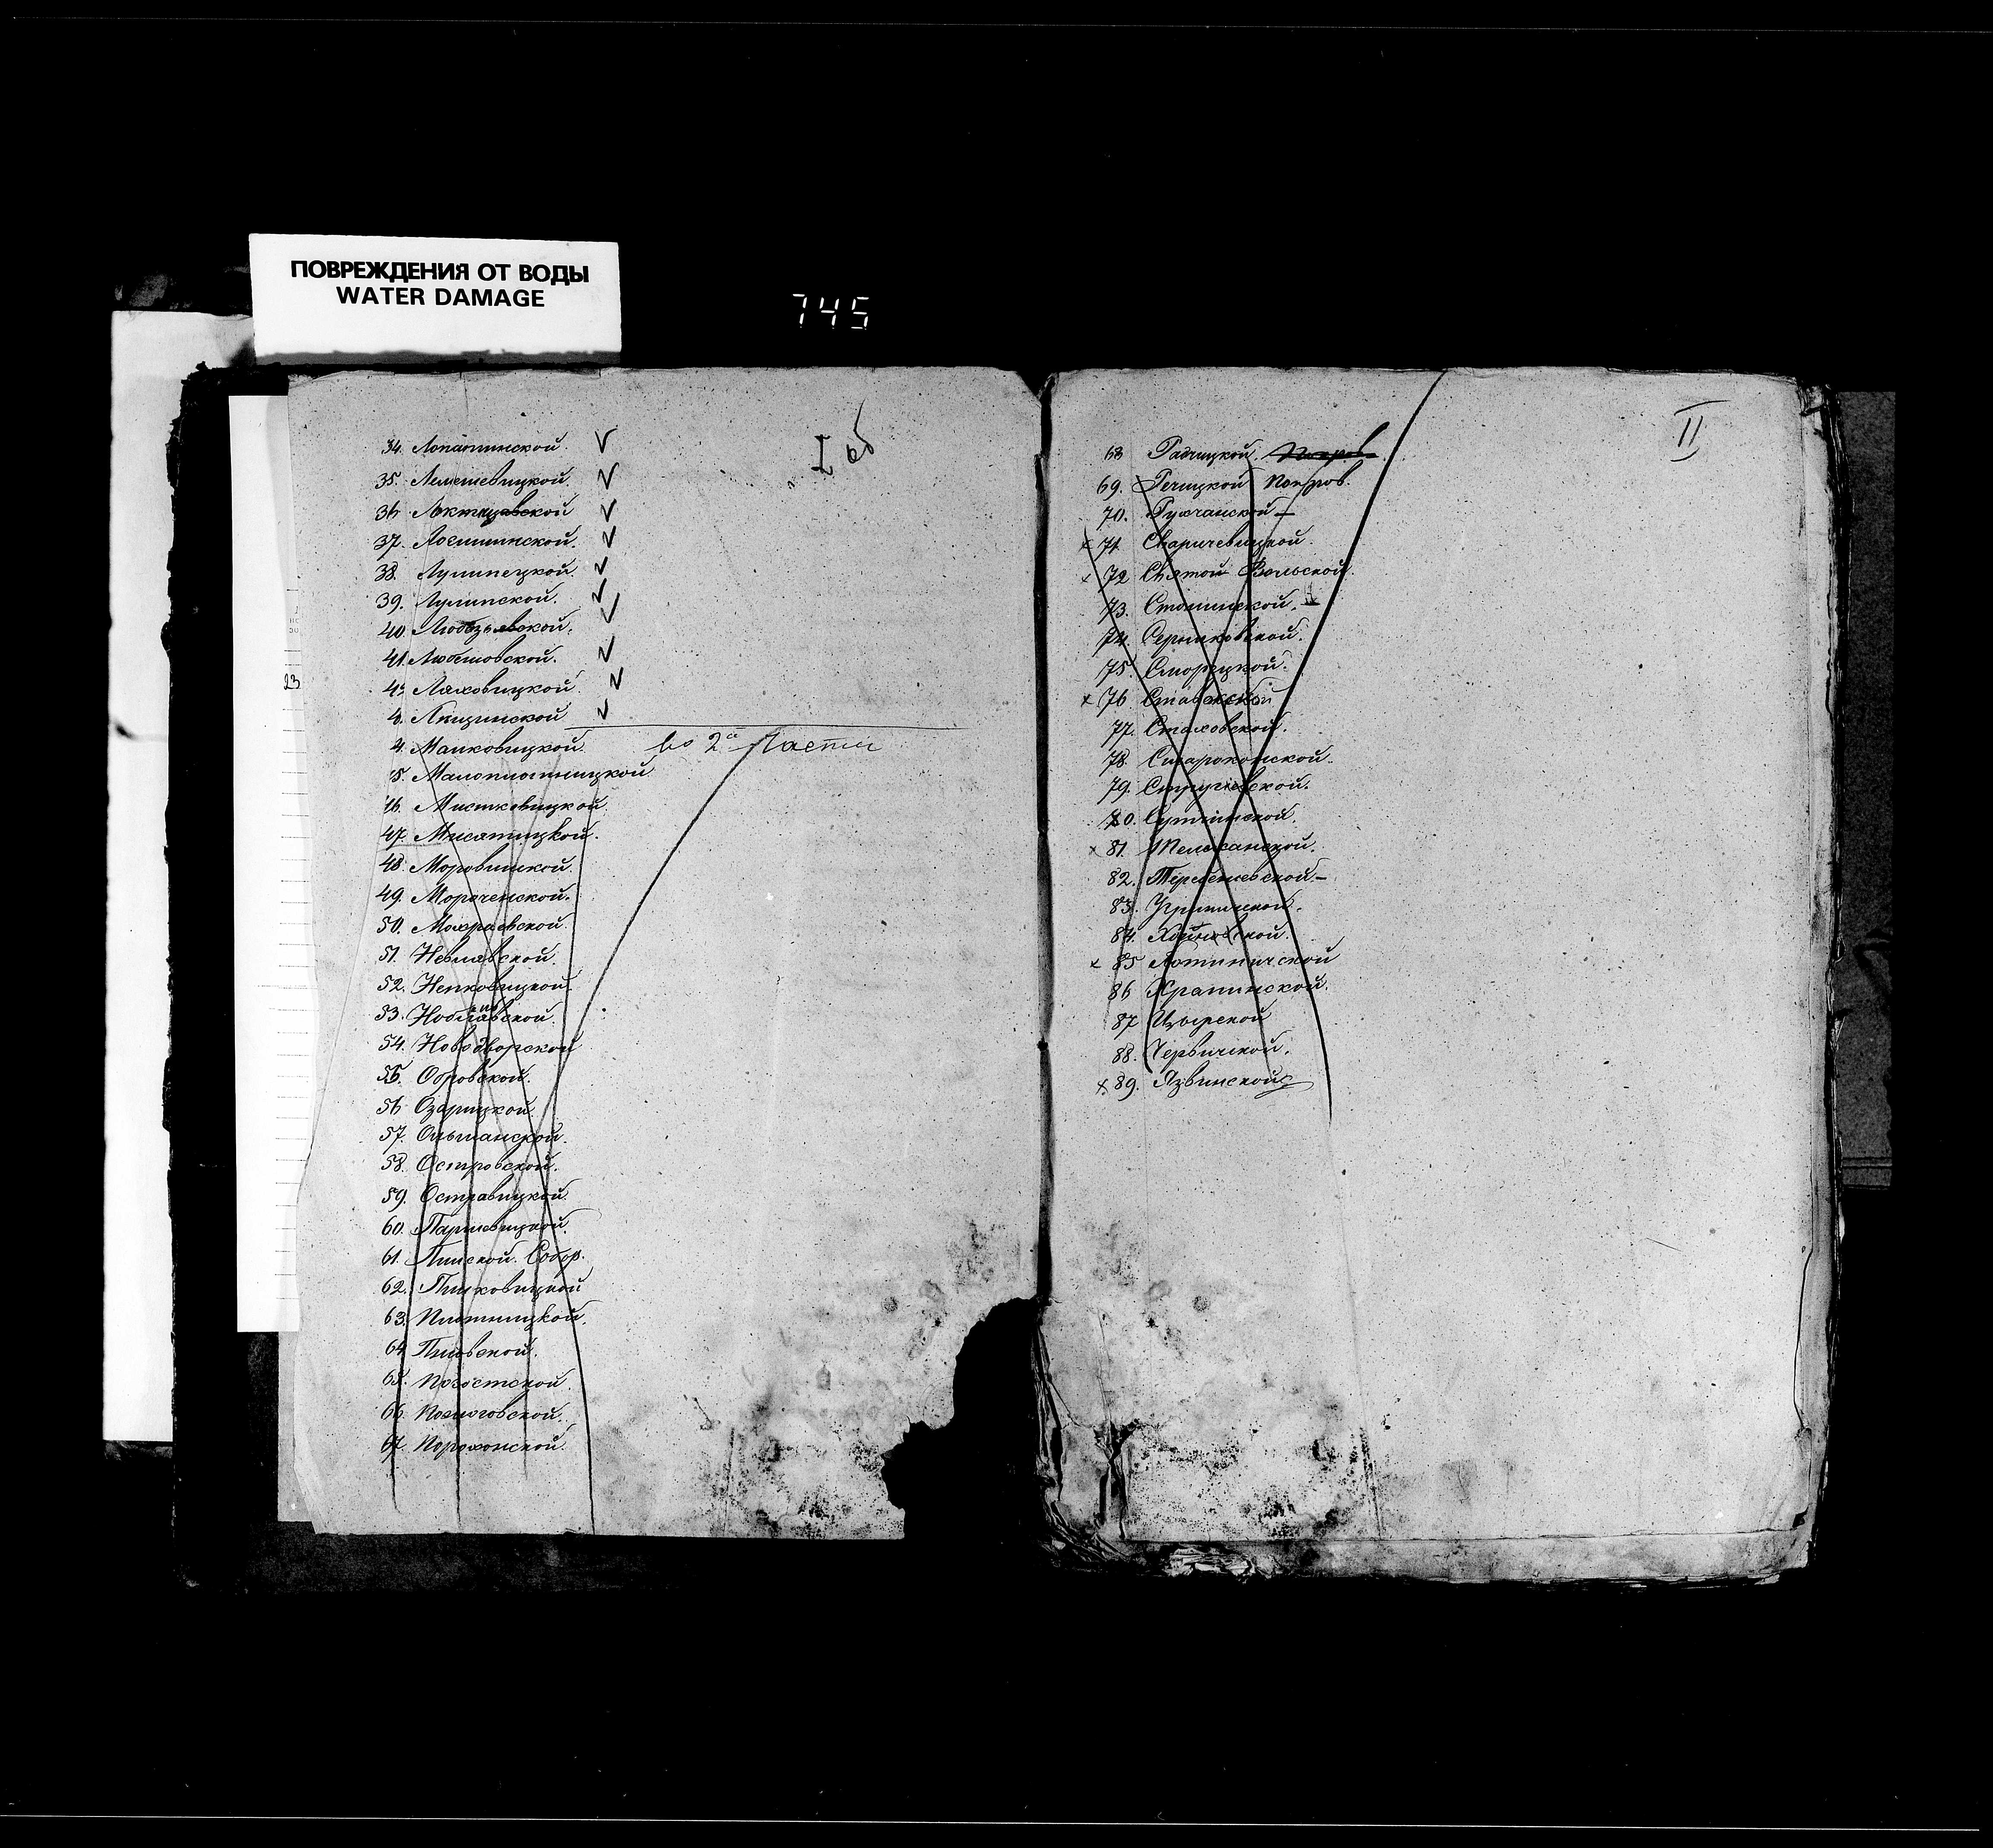 ПОВРЕЖДЕНИЯ ОТ ВОДЫ
WATER DAMAGE
745
I об
34. Лопатинской. √
35. Лемешевицкой. √
36. √
37. Логишинской. √
38. Лунинецкой. √
39. Лунинской. √
40. Любязьвской. √
41. Любешовской. √
42 Ляховицкой. √
23
4. √
4. Маньковицкой. во 2й части
45. Малоплотницкой
46. Мистковицкой.
47. Мисятицкой.
48. Моровинской.
49. Мороченской.
50. Мохраевской.
51. Невлявской.
52. Ненковицкой.
53. Ноблявской.
54. Новодворской
55. Обровской.
56 Озарицкой.
57. Ольманской.
58. Островской.
59. Остравицкой.
60. Паршевицкой.
61. Пинской. Собор.
62. Пинковицкой
63. Плотницкой.
64 Пневской.
65. Погостской.
66. Посноговской.
67. Порохонской.
II
68 Радчицкой.
69. Речицкой Покров.
70. Рухчанской —
× 71 Сваричевицкой
× 72 Святой Вольской.
73. Столинской. —
74. Серниковской.
75. Сморуцкой.
× 76 Ставокской
77. Стаховской.
78. Староконской.
79. Струговской.
80. Сутинской.
× 81. Телеханской.
82. Теребежевской. —
83. Угриничской.
84. Хойновской.
× 85 Хотыничской
86 Храпинской.
87 Цырской
88. Червищской.
× 89. Язвинской